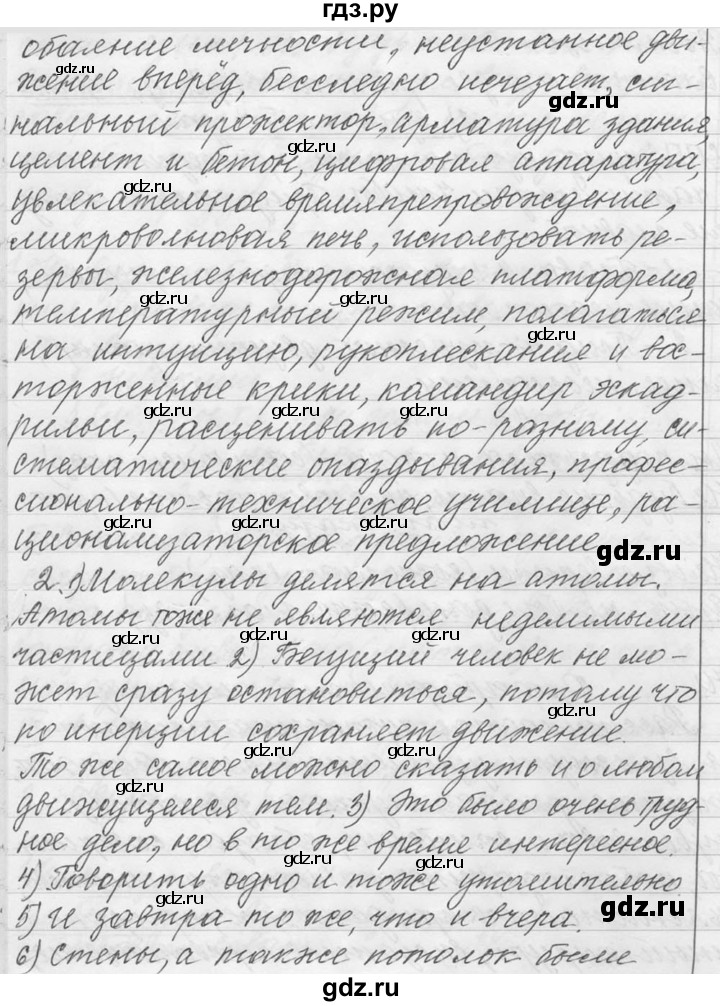 гдз.ру
обаяние личности, неустанное дви-
жение вперёд, бесследно исчезает, сиг-
нальный прожектор, арматура здания,
цемент и бетон, цифровая аппаратура,
увлекательное времяпрепровождение,
микроволновая печь, использовать ре-
зервы, железнодорожная платформа,
температурный режим, полагаться
на интуицию, рукоплескания и вос-
торженные крики, командир эскад-
рильи, расценивать по-разному, си-
стематические опаздывания, профес-
сионально-техническое училище, ра-
ционализаторское предложение
2. 1) Молекулы делятся на атомы.
Атомы тоже не являются неделимыми
частицами 2) Бегущий человек не мо-
жет сразу остановиться, потому что
по инерции сохраняет движение.
То же самое можно сказать и о любом
движущемся тем. 3) Это было очень труд-
ное дело, но в то же время интересное.
4) Говорить одно и тоже утомительно
5) И завтра то же, что и вчера.
6) Стены, а также потолок были
gdz.ru